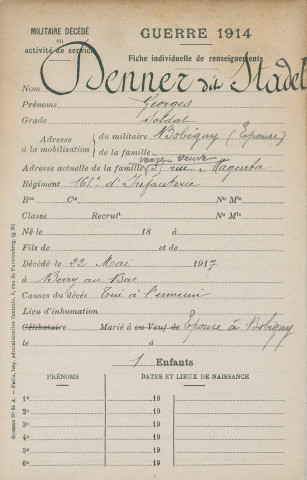 MILITAIRE DÉCÉDÉ
en
activité de service
GUERRE 1914
Fiche individuelle de renseignements
Nom Denner dit Stadel
Prénoms Georges
Grade Soldat
Adresse à la mobilisation { du militaire Bobigny (Épouse)
de la famille
veuve
Adresse actuelle de la famille rue Magenta
Régiment 161e d'Infanterie
Bon Cie No Mle
Classe Recrut No Mle
Né le 18 à
Fils de et de
Décédé le 22 Mai 1917
à Berry au Bac
Causes du décès Tué à l'ennemi
Lieu d'inhumation
Célibataire Marié à ou Veuf de Épouse à Bobigny
le à
1 Enfants
PRÉNOMS DATES ET LIEUX DE NAISSANCE
1o 19
2o 19
3o 19
4o 19
5o 19
6o 19